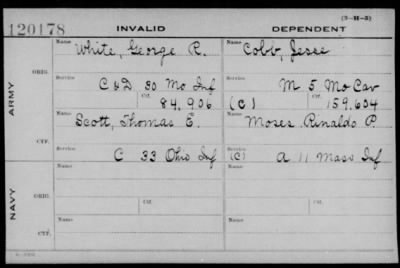 (3-H-3)
120178 INVALID DEPENDENT
Name White, George R. Name Cobb, Jesse
ORIG.
Service C & D 30 Mo Inf Service M 5 Mo Cav
Ctf. 84,906 (C) Ctf. 159,604
ARMY
Name Scott, Thomas E. Name Moses Rinaldo P.
CTF.
Service C 33 Ohio Inf Service (C) A 11 Mass Inf
Name Name
ORIG.
Ctf. Ctf.
NAVY
Name Name
CTF.